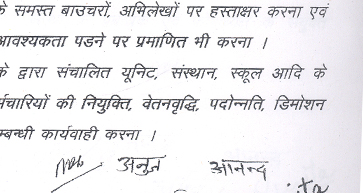 के समस्त बाउचरों, अभिलेखों पर हस्ताक्षर करना एवं
आवश्यकता पडने पर प्रमाणित भी करना ।
के द्वारा संचालित यूनिट, संस्थान, स्कूल आदि के
र्मचारियों की नियुक्ति, वेतनवृद्धि, पदोन्नति, डिमोशन
म्बन्धी कार्यवाही करना ।
अनुज आनन्द